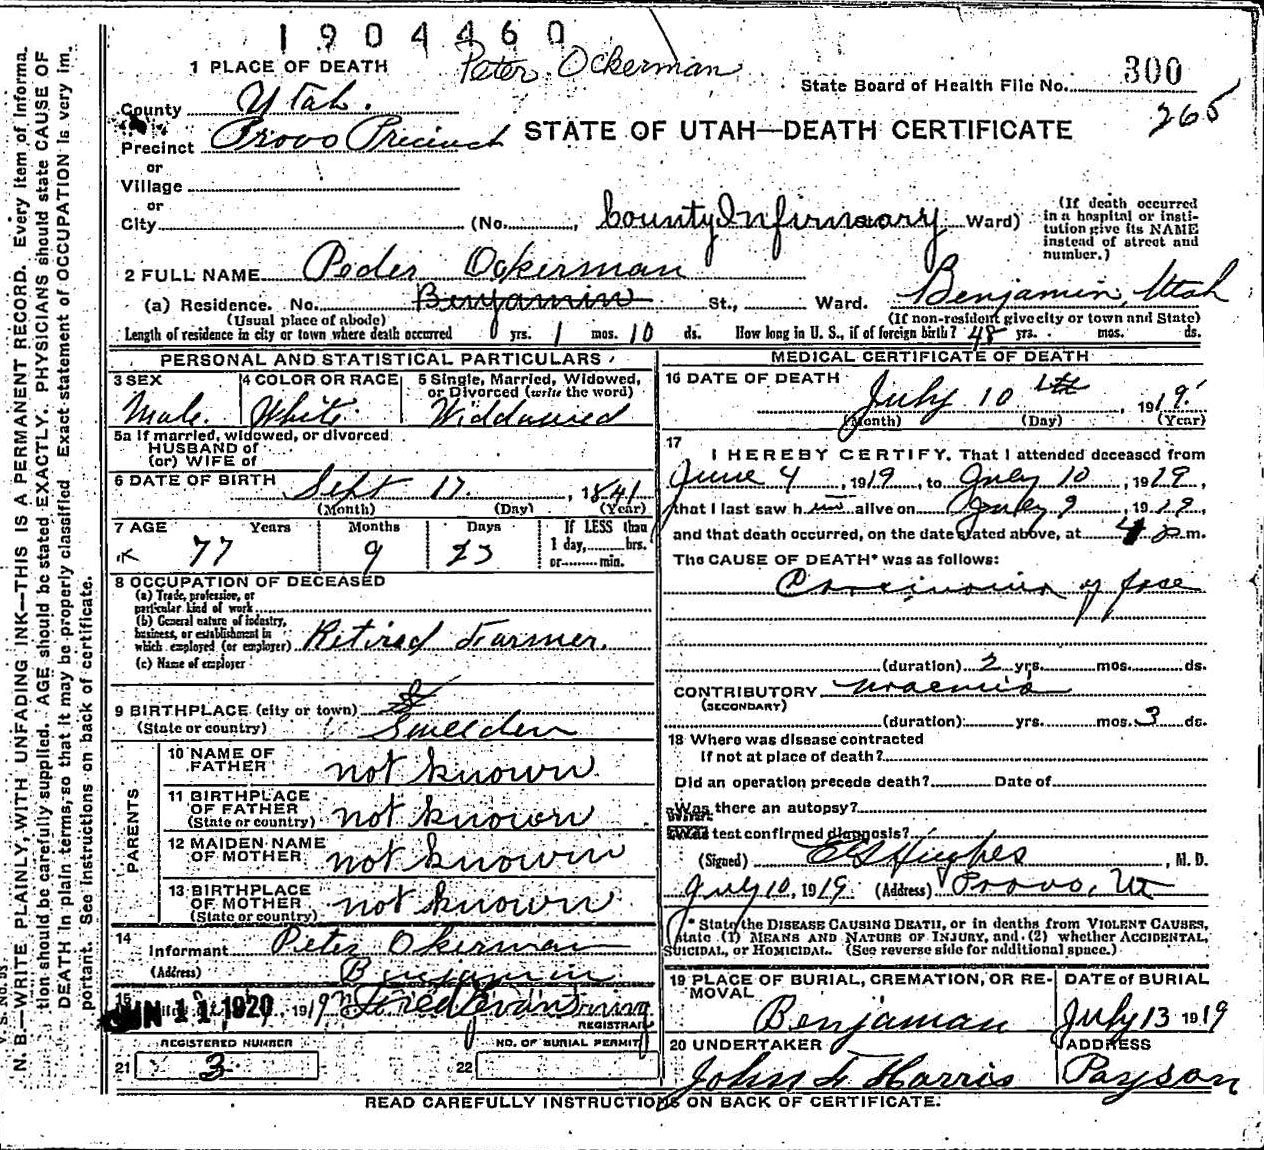 1904460
Peter Ockerman
1 PLACE OF DEATH
State Board of Health File No. 300
265
County Utah.
Precinct Provo Precinct
STATE OF UTAH—DEATH CERTIFICATE
or
Village
or
City (No. , County Infirmary Ward)
(If death occurred in a hospital or insti-
tution give its NAME
instead of street and
number.)
2 FULL NAME Peder Ockerman
(a) Residence. No. Benjamin St., Ward. Benjamin, Utah
(Usual place of abode) (If non-resident give city or town and State)
Length of residence in city or town where death occurred yrs. 1 mos. 10 ds. How long in U. S., if of foreign birth? 48 yrs. mos. ds.
PERSONAL AND STATISTICAL PARTICULARS
3 SEX Male.
4 COLOR OR RACE White.
5 Single, Married, Widowed,
or Divorced (write the word)
Widdowed
5a If married, widowed, or divorced
HUSBAND of
(or) WIFE of
6 DATE OF BIRTH Sept 17. , 1841
(Month) (Day) (Year)
7 AGE Years Months Days If LESS than
77 9 23 1 day, hrs.
or min.
8 OCCUPATION OF DECEASED
(a) Trade, profession, or
particular kind of work
(b) General nature of industry,
business, or establishment in
which employed (or employer) Retired Farmer.
(c) Name of employer
9 BIRTHPLACE (city or town)
(State or country) Sweeden
PARENTS
10 NAME OF
FATHER not known
11 BIRTHPLACE
OF FATHER
(State or country) not known
12 MAIDEN NAME
OF MOTHER not known
13 BIRTHPLACE
OF MOTHER
(State or country) not known
14 Informant Peter Okerman
(Address) Benjamin
15 JUN 11 1920 , 1919 Fred Evans
REGISTRAR
REGISTERED NUMBER NO. OF BURIAL PERMIT
21 3 22
MEDICAL CERTIFICATE OF DEATH
16 DATE OF DEATH
July 10 th , 1919.
(Month) (Day) (Year)
17
I HEREBY CERTIFY, That I attended deceased from
June 4 , 1919, to July 10 , 1919,
that I last saw him alive on July 9 , 1919,
and that death occurred, on the date stated above, at 4 p m.
The CAUSE OF DEATH* was as follows:
Carcinoma of face
(duration) 2 yrs. mos. ds.
CONTRIBUTORY uraemia
(SECONDARY)
(duration) yrs. mos. 3 ds.
18 Where was disease contracted
If not at place of death?
Did an operation precede death? Date of
Was there an autopsy?
What test confirmed diagnosis?
(Signed) E G Hughes , M. D.
July 10, 1919 (Address) Provo, Ut
* State the DISEASE CAUSING DEATH, or in deaths from VIOLENT CAUSES,
state (1) MEANS AND NATURE OF INJURY, and (2) whether ACCIDENTAL,
SUICIDAL, or HOMICIDAL. (See reverse side for additional space.)
19 PLACE OF BURIAL, CREMATION, OR RE-
MOVAL
Benjaman
DATE OF BURIAL
July 13 1919
20 UNDERTAKER
John F Harris
ADDRESS
Payson
READ CAREFULLY INSTRUCTIONS ON BACK OF CERTIFICATE.
N. B.—WRITE PLAINLY, WITH UNFADING INK—THIS IS A PERMANENT RECORD. Every item of informa-
tion should be carefully supplied. AGE should be stated EXACTLY. PHYSICIANS should state CAUSE OF
DEATH in plain terms, so that it may be properly classified. Exact statement of OCCUPATION is very im-
portant. See instructions on back of certificate.